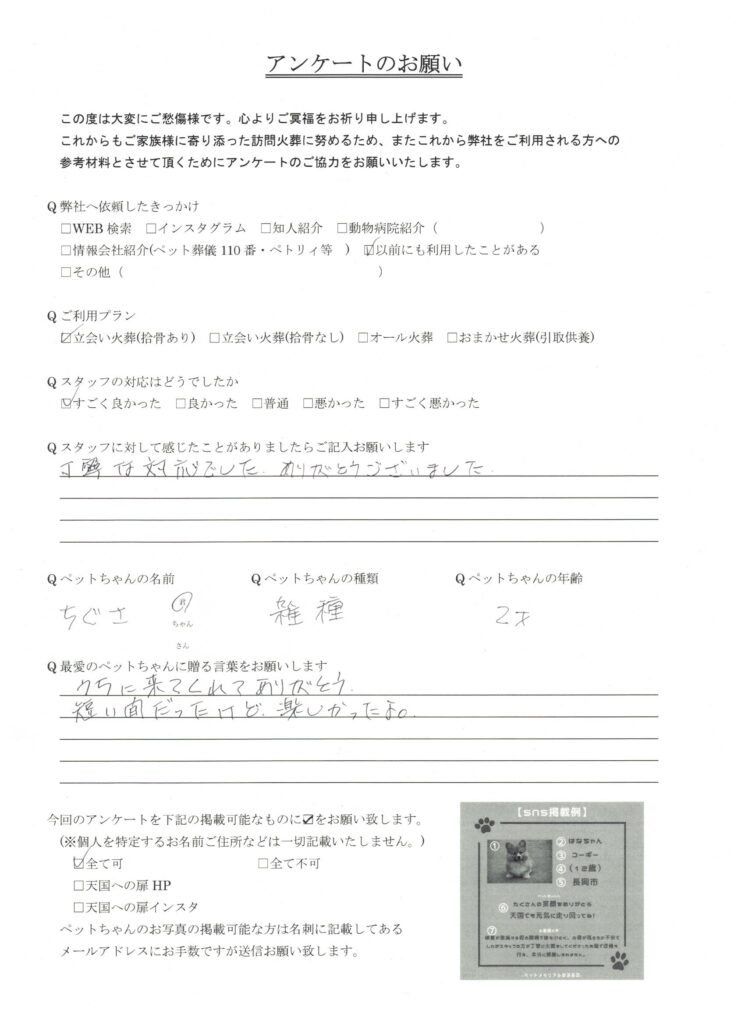 アンケートのお願い
この度は大変にご愁傷様です。心よりご冥福をお祈り申し上げます。
これからもご家族様に寄り添った訪問火葬に努めるため、またこれから弊社をご利用される方への
参考材料とさせて頂くためにアンケートのご協力をお願いいたします。
Q 弊社へ依頼したきっかけ
□WEB 検索 □インスタグラム □知人紹介 □動物病院紹介（ ）
□情報会社紹介(ペット葬儀 110 番・ペトリィ等 ) ☑以前にも利用したことがある
□その他（ ）
Q ご利用プラン
☑立会い火葬(拾骨あり) □立会い火葬(拾骨なし) □オール火葬 □おまかせ火葬(引取供養)
Q スタッフの対応はどうでしたか
☑すごく良かった □良かった □普通 □悪かった □すごく悪かった
Q スタッフに対して感じたことがありましたらご記入お願いします
丁寧な対応でした。ありがとうございました。
Q ペットちゃんの名前 Q ペットちゃんの種類 Q ペットちゃんの年齢
ちぐさ 君 雑種 2才
ちゃん
さん
Q 最愛のペットちゃんに贈る言葉をお願いします
うちに来てくれてありがとう。
短い間だったけど、楽しかったよ。
今回のアンケートを下記の掲載可能なものに☑をお願い致します。
(※個人を特定するお名前ご住所などは一切記載いたしません。)
☑全て可 □全て不可
□天国への扉 HP
□天国への扉インスタ
ペットちゃんのお写真の掲載可能な方は名刺に記載してある
メールアドレスにお手数ですが送信お願い致します。
【sns掲載例】
① ② はなちゃん
③ コーギー
④ (12歳)
⑤ 長岡市
⑥ たくさんの笑顔をありがとう
天国でも元気に走り回ってね!
⑦